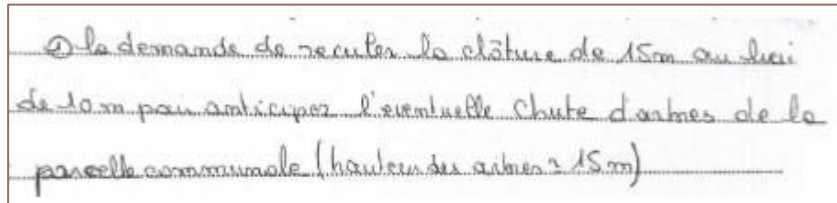 ① la demande de reculer la clôture de 15m au lieu
de 10m pour anticiper l'eventuelle chute d'arbres de la
parcelle communale (hauteur des arbres = 15m)